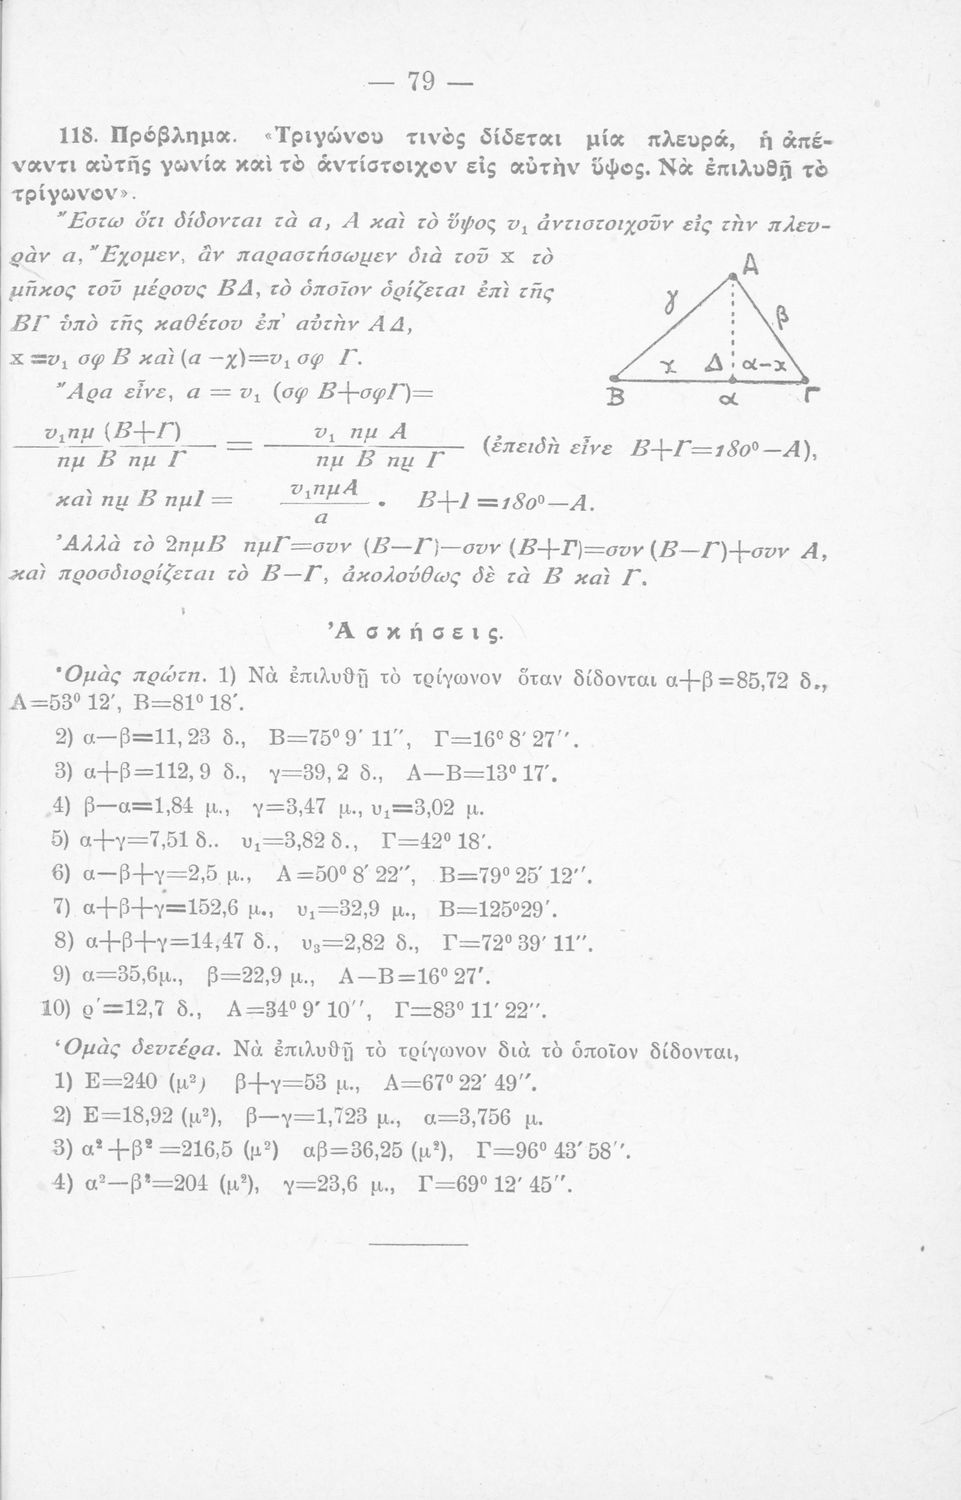 — 79 —
118. Πρόβλημα. «Τριγώνου τινὸς δίδεται μία πλευρά, ἡ ἀπέ-
ναντι αὐτῆς γωνία καὶ τὸ ἀντίστοιχον εἰς αὐτὴν ὕψος. Νὰ ἐπιλυθῇ τὸ
τρίγωνον».
Ἔστω ὅτι δίδονται τὰ α, Α καὶ τὸ ὕψος υ₁ ἀντιστοιχοῦν εἰς τὴν πλευ-
ρὰν α, Ἔχομεν, ἂν παραστήσωμεν διὰ τοῦ x τὸ
μῆκος τοῦ μέρους ΒΔ, τὸ ὁποῖον ὁρίζεται ἐπὶ τῆς
ΒΓ ὑπὸ τῆς καθέτου ἐπ' αὐτὴν ΑΔ,
x=υ₁ σφ Β καὶ (α—χ)=υ₁ σφ Γ.
Ἄρα εἶνε, α = υ₁ (σφ Β+σφΓ)=
υ₁ημ (Β+Γ) / ημ Β ημ Γ = υ₁ ημ Α / ημ Β ημ Γ (ἐπειδὴ εἶνε Β+Γ=180⁰—Α),
καὶ ημ Β ημΓ = υ₁ημΑ / α . Β+Γ=180⁰—Α.
Ἀλλὰ τὸ 2ημΒ ημΓ=συν (Β—Γ)—συν (Β+Γ)=συν (Β—Γ)+συν Α,
καὶ προσδιορίζεται τὸ Β—Γ, ἀκολούθως δὲ τὰ Β καὶ Γ.
Α
γ
β
x Δ α-x
Β α Γ
Ἀσκήσεις.
Ὁμὰς πρώτη. 1) Νὰ ἐπιλυθῇ τὸ τρίγωνον ὅταν δίδονται α+β=85,72 δ.,
Α=53⁰ 12′, Β=81⁰ 18′.
2) α—β=11,23 δ., Β=75⁰ 9′ 11″, Γ=16⁰ 8′ 27″.
3) α+β=112,9 δ., γ=39,2 δ., Α—Β=13⁰ 17′.
4) β—α=1,84 μ., γ=3,47 μ., υ₁=3,02 μ.
5) α+γ=7,51 δ.. υ₁=3,82 δ., Γ=42⁰ 18′.
6) α—β+γ=2,5 μ., Α=50⁰ 8′ 22″, Β=79⁰ 25′ 12″.
7) α+β+γ=152,6 μ., υ₁=32,9 μ., Β=125⁰29′.
8) α+β+γ=14,47 δ., υ₃=2,82 δ., Γ=72⁰ 39′ 11″.
9) α=35,6μ., β=22,9 μ., Α—Β=16⁰ 27′.
10) ρ′=12,7 δ., Α=34⁰ 9′ 10″, Γ=83⁰ 11′ 22″.
Ὁμὰς δευτέρα. Νὰ ἐπιλυθῇ τὸ τρίγωνον διὰ τὸ ὁποῖον δίδονται,
1) Ε=240 (μ²) β+γ=53 μ., Α=67⁰ 22′ 49″.
2) Ε=18,92 (μ²), β—γ=1,723 μ., α=3,756 μ.
3) α²+β²=216,5 (μ²) αβ=36,25 (μ²), Γ=96⁰ 43′ 58″.
4) α²—β²=204 (μ²), γ=23,6 μ., Γ=69⁰ 12′ 45″.